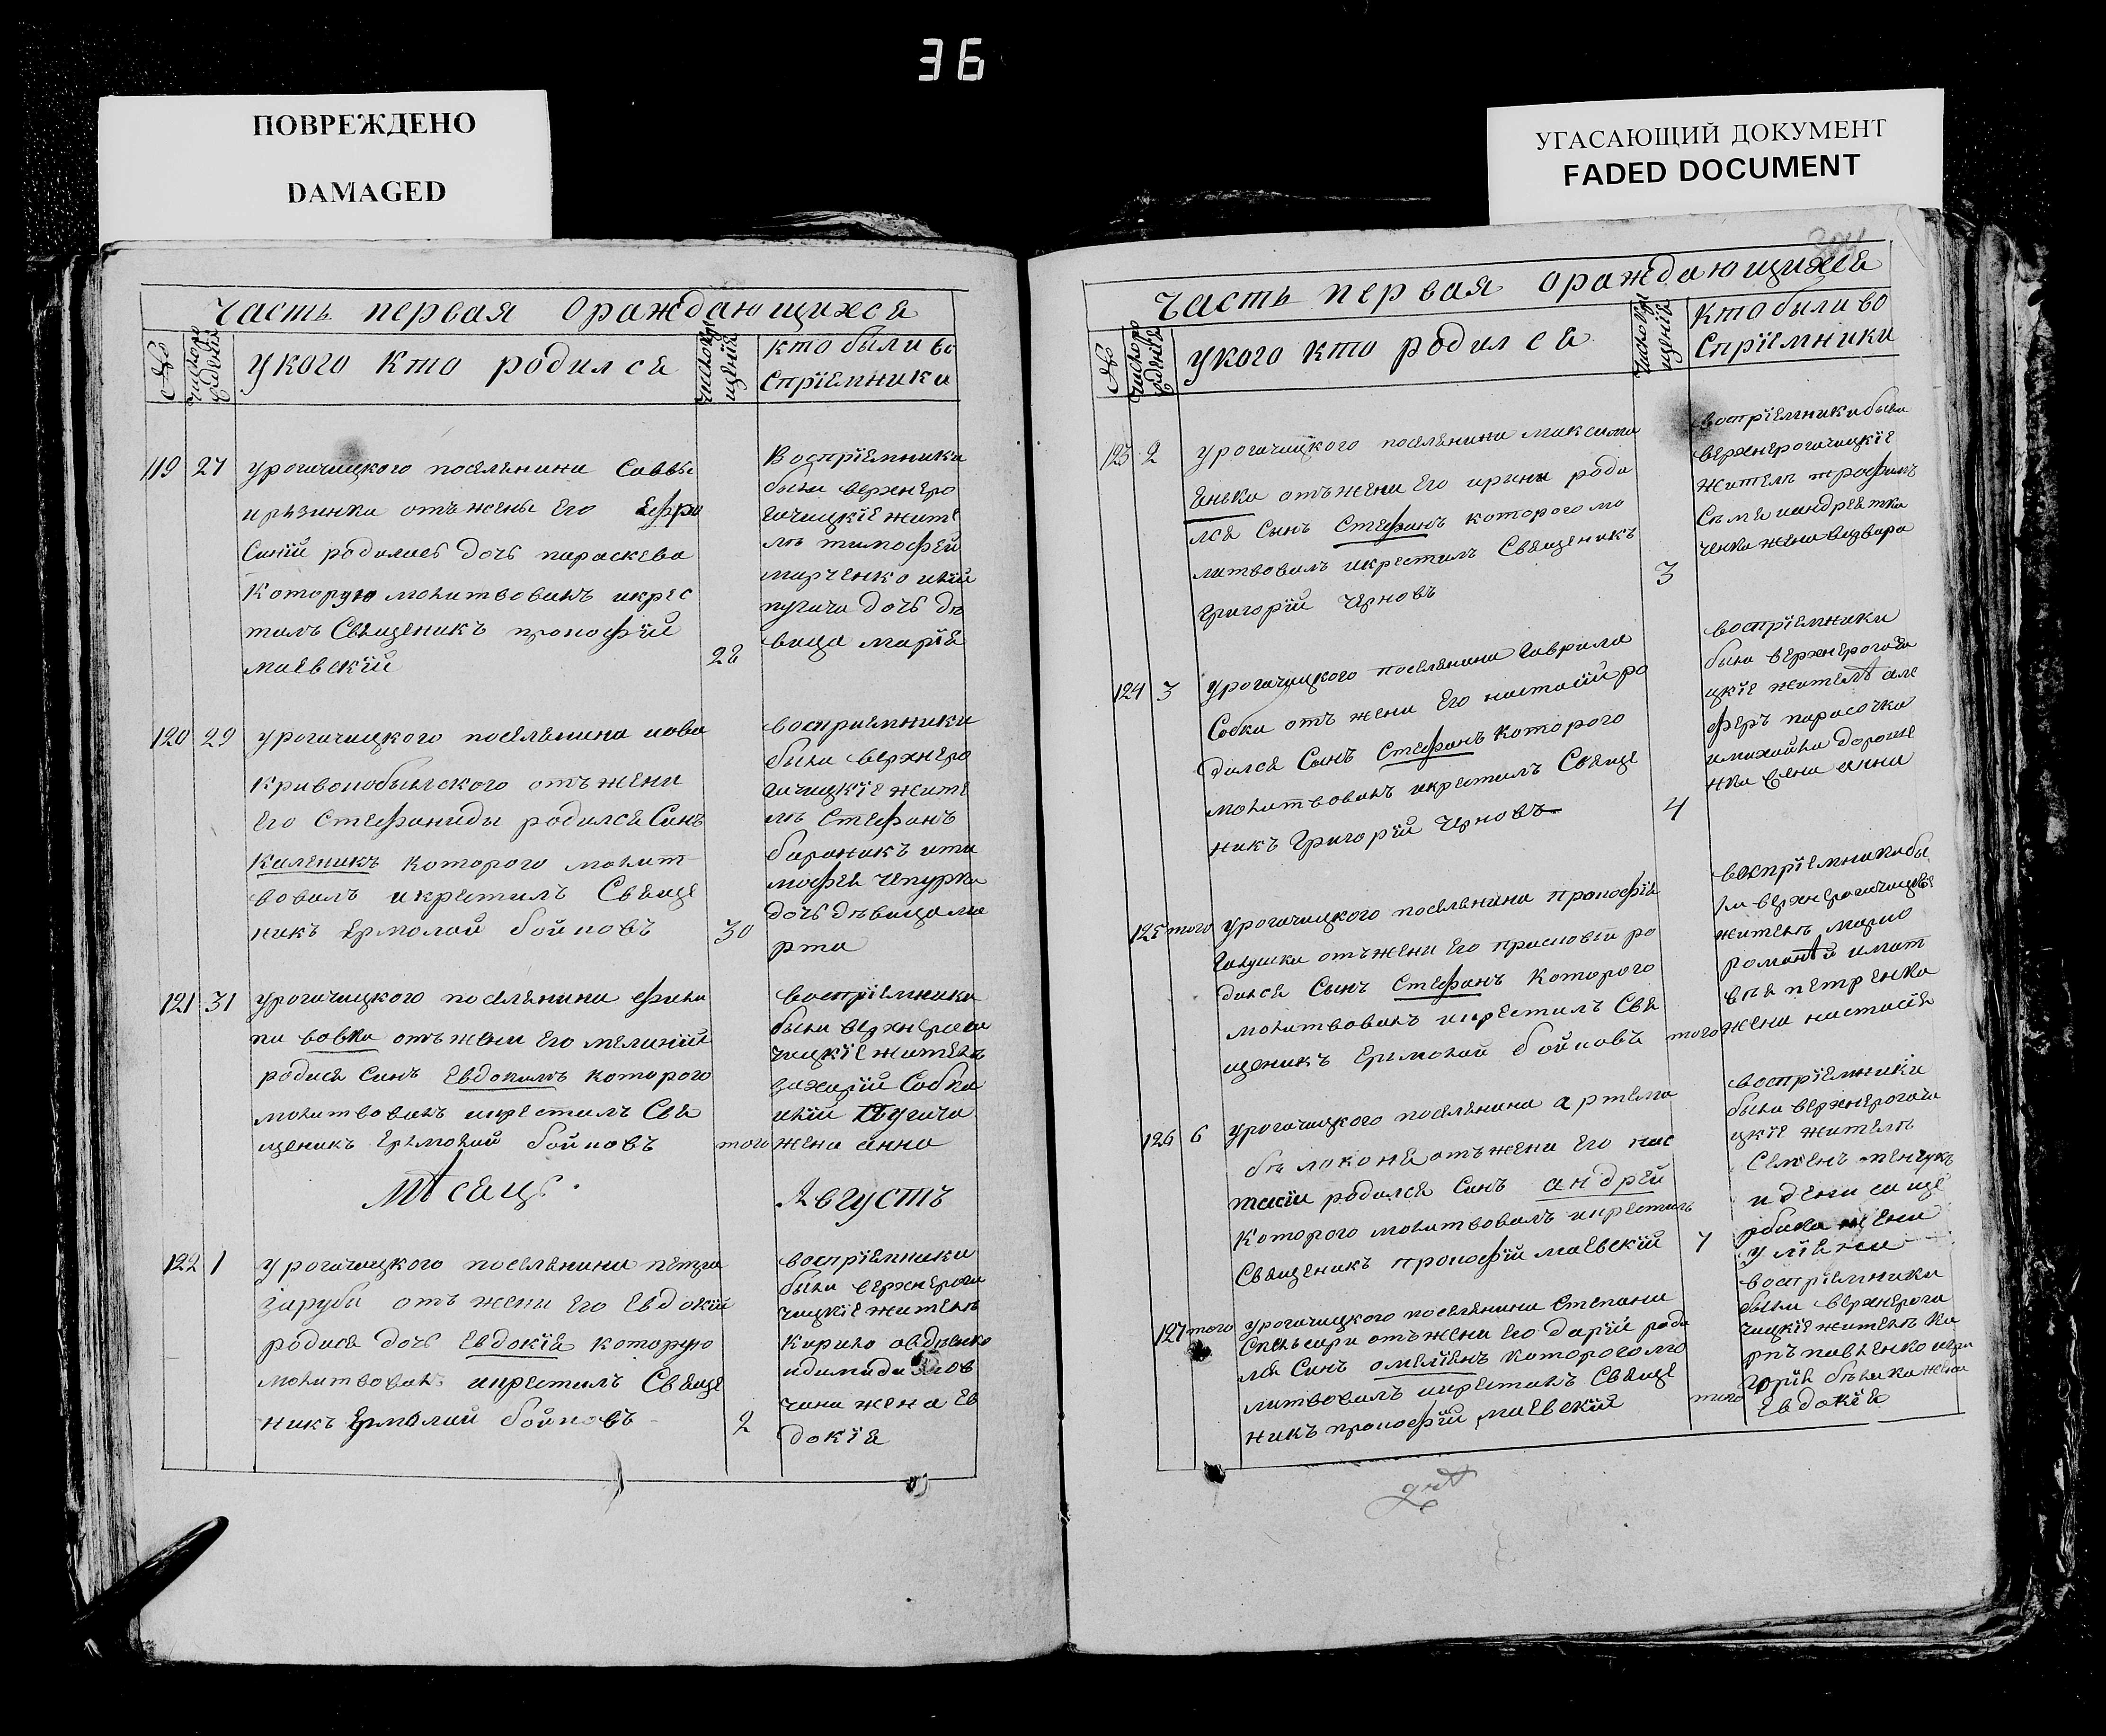 36
ПОВРЕЖДЕНО
DAMAGED
УГАСАЮЩИЙ ДОКУМЕНТ
FADED DOCUMENT
часть первая ораждающихся
№
число ро
ждения
укого кто родился
число кре
щения
кто были во
спріемники
119 27
урогачицкого поселянина Саввы
отъ жены его Ефро
синіи родилась дочь параскева
которую молитвовалъ икрес
тилъ Священикъ прокофій
маевскій
28
Воспріемники
были верхнеро
гачицкіе жите
лѣ тимофей
марченко илїи
пугача дочь дѣ
вица маріа
120 29
урогачицкого поселянина иова
кривокобыльского отъ жени
его Стефаниды родился Синъ
каленикъ которого молит
вовалъ икрестилъ Свяще
никъ Ермолай бойковъ
30
восприемники
были верхнеро
гачицкіе жите
лѣ Стефанъ
бараникъ ити
мофея чепурки
дочь дѣвица ма
рта
121 31
урогачицкого поселянина фили
па вовка отъ жени его меланіи
родися синъ Евдокимъ которого
молитвовалъ икрестилъ Свя
щеникъ Ермолай бойковъ
того
воспріемники
были верхнерога
чицкіе жителѣ
захарій Собка
илїи Пугача
жена анна
мѣсяцъ. Августъ
122 1
урогачицкого поселянина петра
зарубы отъ жени его Евдокіи
родися дочь Евдокія которую
молитвовалъ икрестилъ Свяще
никъ Ермолай бойковъ
2
воспріемники
были верхнерога
чицкіе жителѣ
Кирило авдѣенко
чана жена Ев
докїя
304
часть первая ораждающихся
№
число ро
ждения
укого кто родился
число кре
щения
кто были во
спріемники
123 2
урогачицкого поселянина максима
Енька отъ жени его ирини роди
лся сынъ Стефанъ которого мо
литвовалъ икрестилъ Священикъ
Григорїй Черновъ
3
воспріемники были
верхнерогачицкіе
жителѣ трофимъ
ченка жена
124 3
урогачицкого поселянина Гаврила
Собка отъ жени его настасїи ро
дился Сынъ Стефанъ которого
молитвовалъ икрестилъ Свяще
никъ Григорїй Черновъ
4
воспріемники
были верхнерогачи
цкіе жителѣ але
феръ парасочка
имихайла дороше
нка жена анна
125 того
урогачицкого поселянина прокофія
Галушки отъ жени его прасковїи ро
дился Сынъ Стефанъ которого
молитвовалъ икрестилъ Свя
щеникъ Ермолай бойковъ
того
воспріемники бы
ли верхнерогачицкіе
жителѣ марко
романѣй имат
вѣя петренка
жена настасія
126 6
урогачицкого поселянина артема
бѣлоконя отъ жени его нас
тасїи родился синъ андрей
которого молитвовалъ икрестилъ
Священикъ прокофїй маевскій
7
воспріемники
были верхнерогачи
цкіе жителѣ
Семенъ
идениса ще
рбака жена
уліяна
127 того
урогачицкого поселянина Степана
отъ жени его дарїи роди
лся Синъ омелянъ которого мо
литвовалъ икрестилъ Свяще
никъ прокофїй маевскій
того
воспріемники
были верхнерога
чицкіе жителѣ ка
рпъ павленко игри
горїя бѣлика жена
Евдокія